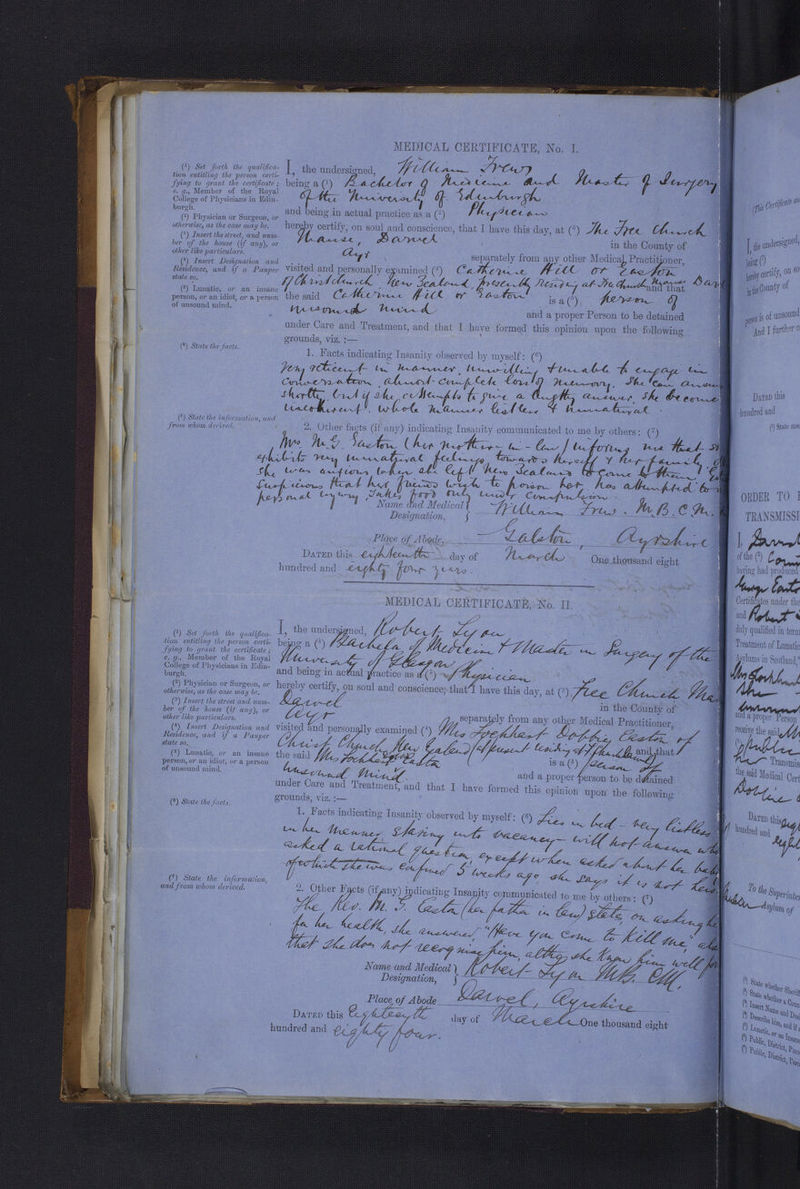 MEDICAL CERTIFICATE, No. I.
(¹) Set forth the qualifica-
tion entitling the person certi-
fying to grant the certificate;
e. g., Member of the Royal
College of Physicians in Edin-
burgh.
(²) Physician or Surgeon, or
otherwise, as the case may be.
(³) Insert the street, and num-
ber of the house (if any), or
other like particulars.
(⁴) Insert Designation and
Residence, and if a Pauper
state so.
(⁵) Lunatic, or an insane
person, or an idiot, or a person
of unsound mind.
(⁶) State the facts.
(⁷) State the information, and
from whom derived.
I, the undersigned, William Frew
being a (¹) Bachelor of Medicine and Master of Surgery
of the University of Edinburgh
and being in actual practice as a (²) Physician
hereby certify, on soul and conscience, that I have this day, at (³) The Free Church
Manse, Darvel in the County of
Ayr separately from any other Medical Practitioner,
visited and personally examined (⁴) Catherine Hill or Easton
of Christchurch New Zealand, presently residing at Free Church Manse Dar and that
the said Catherine Hill or Easton is a (⁵) person of
unsound mind and a proper Person to be detained
under Care and Treatment, and that I have formed this opinion upon the following
grounds, viz. :—
1. Facts indicating Insanity observed by myself: (⁶)
Very reticent in manner, unwilling & unable to engage in
conversation, almost complete loss of memory. She can answer
shortly, but if she attempts to give a lengthy answer, she becomes
incoherent. Whole manner listless & unnatural
2. Other facts (if any) indicating Insanity communicated to me by others: (⁷)
Mrs M. G. Easton (her mother-in-law) informs me that she
exhibits very unnatural feelings towards herself & her family
she was anxious when she left New Zealand to come to them.
Suspicious that her friends wish to poison her, has attempted to
personal injury. Takes food only under compulsion.
Name and Medical Designation, } William Frew. M.B. C.M.
Place of Abode, Galston, Ayrshire
DATED this eighteenth day of March One thousand eight
hundred and eighty four years.
MEDICAL CERTIFICATE, No. II.
(¹) Set forth the qualifica-
tion entitling the person certi-
fying to grant the certificate;
e. g., Member of the Royal
College of Physicians in Edin-
burgh.
(²) Physician or Surgeon, or
otherwise, as the case may be.
(³) Insert the street and num-
ber of the house (if any), or
other like particulars.
(⁴) Insert Designation and
Residence, and if a Pauper
state so.
(⁵) Lunatic, or an insane
person, or an idiot, or a person
of unsound mind.
(⁶) State the facts.
(⁷) State the information,
and from whom derived.
I, the undersigned, Robert Lyon
being a (¹) Bachelor of Medicine & Master in Surgery of the
University of Glasgow
and being in actual practice as a (²) Physician
hereby certify, on soul and conscience, that I have this day, at (³) Free Church Ma
Darvel in the County of
Ayr separately from any other Medical Practitioner,
visited and personally examined (⁴) Mrs Easton of
Christ Church New Zealand (at present residing at and that
the said Mrs Easton is a (⁵) person of
unsound mind and a proper person to be detained
under Care and Treatment, and that I have formed this opinion upon the following
grounds, viz. :—
1. Facts indicating Insanity observed by myself: (⁶) Lies in bed - very listless
in her manner, staring into vacancy - will not answer wh
asked a rational question, except when asked about her baby
of which she was confined 5 weeks ago she says it is not hers
2. Other Facts (if any) indicating Insanity communicated to me by others: (⁷)
The Rev. M. G. Easton (her father in law) states, on asking h
for her health, she answered, "Have you come to kill me, al
that she does not recognise him, altho she knew him well
Name and Medical Designation, } Robert Lyon MB. CM.
Place of Abode Darvel, Ayrshire
DATED this Eighteenth day of March One thousand eight
hundred and eighty four.
I, the undersigned,
being (¹)
hereby certify, on so
in the County of
person is of unsound
And I further c
DATED this
hundred and
ORDER TO
TRANSMISSI
of the (²)
having had produced
Certificates under the
and Robert
duly qualified in term
Treatment of Lunatic
Asylums in Scotland,
and a proper Person
receive the said
Transmis
the said Medical Cert
DATED this
hundred and
To the Superinten
Asylum of